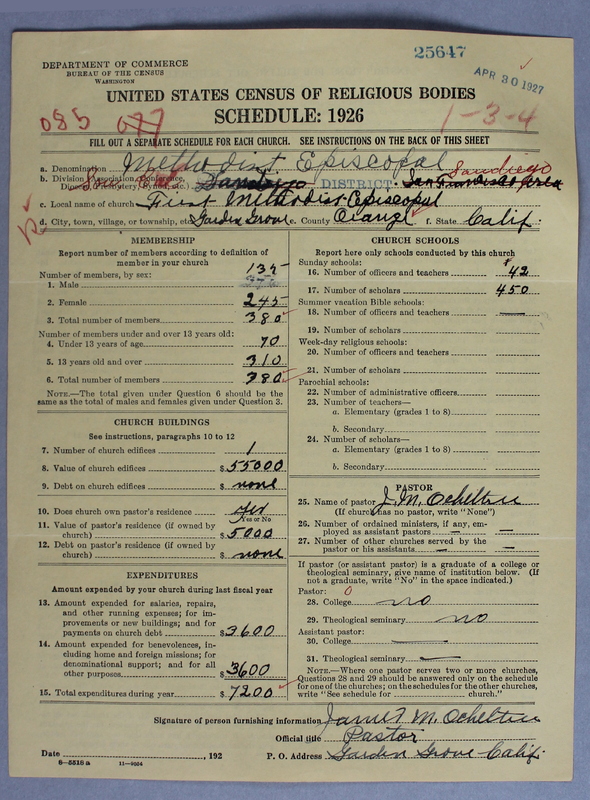 25647
APR 30 1927
DEPARTMENT OF COMMERCE
BUREAU OF THE CENSUS
WASHINGTON
UNITED STATES CENSUS OF RELIGIOUS BODIES
SCHEDULE: 1926
085 077
1-3-4
FILL OUT A SEPARATE SCHEDULE FOR EACH CHURCH. SEE INSTRUCTIONS ON THE BACK OF THIS SHEET
a. Denomination Methodist Episcopal
b. Division (Association, Conference, Diocese, Presbytery, Synod, etc.) Sou. Cal. San Diego DISTRICT: San Francisco Area Sandiego
c. Local name of church First Methodist Episcopal
d. City, town, village, or township, etc. Garden Grove e. County Orange f. State Calif.
MEMBERSHIP
Report number of members according to definition of
member in your church
Number of members, by sex:
1. Male 135
2. Female 245
3. Total number of members 380
Number of members under and over 13 years old:
4. Under 13 years of age 70
5. 13 years old and over 310
6. Total number of members 380
NOTE.—The total given under Question 6 should be the
same as the total of males and females given under Question 3.
CHURCH BUILDINGS
See instructions, paragraphs 10 to 12
7. Number of church edifices 1
8. Value of church edifices $ 55000
9. Debt on church edifices $ none
10. Does church own pastor's residence? yes
Yes or No
11. Value of pastor's residence (if owned by
church) $ 5000
12. Debt on pastor's residence (if owned by
church) $ none
EXPENDITURES
Amount expended by your church during last fiscal year
13. Amount expended for salaries, repairs,
and other running expenses; for im-
provements or new buildings; and for
payments on church debt $ 3600
14. Amount expended for benevolences, in-
cluding home and foreign missions; for
denominational support; and for all
other purposes $ 3600
15. Total expenditures during year $ 7200
CHURCH SCHOOLS
Report here only schools conducted by this church
Sunday schools:
16. Number of officers and teachers 42
17. Number of scholars 450
Summer vacation Bible schools:
18. Number of officers and teachers —
19. Number of scholars
Week-day religious schools:
20. Number of officers and teachers
21. Number of scholars
Parochial schools:
22. Number of administrative officers
23. Number of teachers—
a. Elementary (grades 1 to 8)
b. Secondary
24. Number of scholars—
a. Elementary (grades 1 to 8)
b. Secondary
PASTOR
25. Name of pastor J. M. Ocheltree
(If church has no pastor, write "None")
26. Number of ordained ministers, if any, em-
ployed as assistant pastors — —
27. Number of other churches served by the
pastor or his assistants — —
If pastor (or assistant pastor) is a graduate of a college or
theological seminary, give name of institution below. (If
not a graduate, write "No" in the space indicated.)
Pastor: 0
28. College no
29. Theological seminary no
Assistant pastor:
30. College —
31. Theological seminary —
NOTE.—Where one pastor serves two or more churches,
Questions 28 and 29 should be answered only on the schedule
for one of the churches; on the schedules for the other churches,
write "See schedule for church."
Signature of person furnishing information James M. Ocheltree
Official title Pastor
Date , 192 P. O. Address Garden Grove Calif.
8—5518 a 11—9604